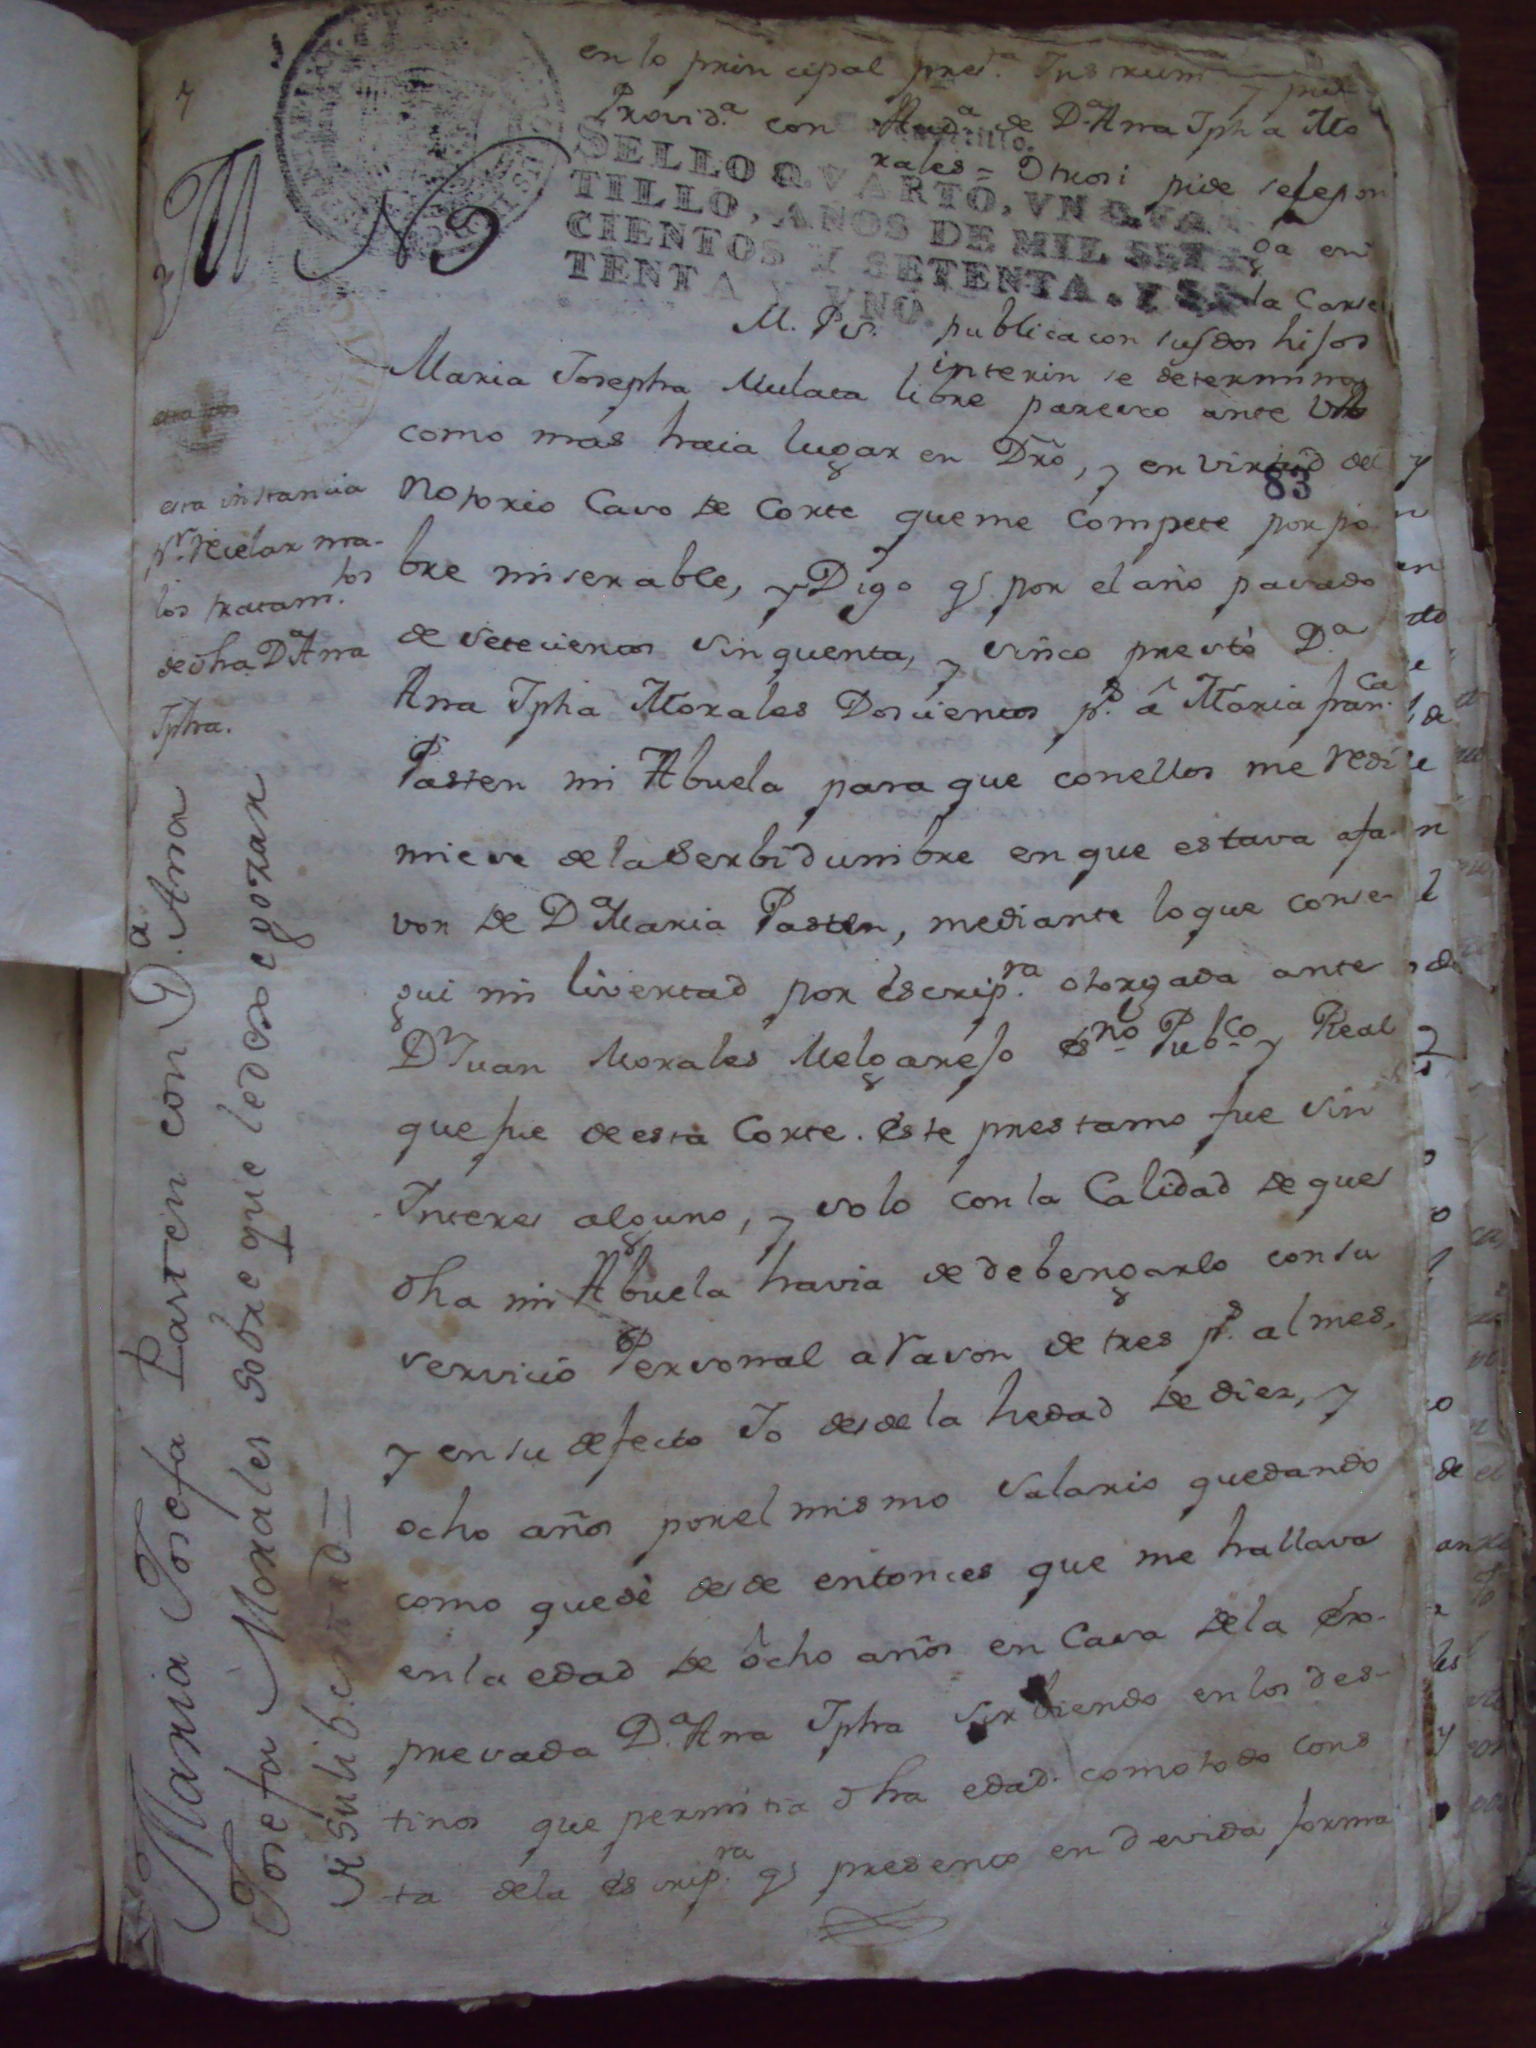 en lo principal pres.ta Instrum
Provid.a con Aud.a de D.a Ana Jpha Mo
rales = Otrosi pide se le pon
ga en
la Carse
publica con sus dos hijos
interin se determina
SELLO QVARTO, VN QVAR
TILLO, AÑOS DE MIL SETE
CIENTOS Y SETENTA, Y SE
TENTA Y VNO.
M. P. S.
Maria Josepha Mulata libre paresco ante
como mas haia lugar en Dro, y en virtud del
83
Notorio Caso de Corte que me compete por po
bre miserable, y Digo q.e por el año pasado
de setecientos sinquenta, y sinco prestò D.a
Ana Jpha Morales Doscientos p.s â Maria fran.ca
Pasten mi Abuela para que con ellos me redi
miese de la Serbidumbre en que estava a fa-
vor de D.a Maria Pasten, mediante lo que conse-
gui mi livertad por escrip.ra otorgada ante
D.n Juan Morales Melgarejo es.no Pub.co y Real
que fue de esta Corte. este prestamo fue sin
Interes alguno, y solo con la Calidad de que
dha mi Abuela havia de debengarlo con su
servicio Personal a rason de tres p.s al mes,
y en su defecto Yo desde la hedad de diez, y
ocho años por el mismo salario quedando
como quedè desde entonces que me hallava
en la edad de ocho años en Casa de la ex-
presada D.a Ana Jpha sirbiendo en los des-
tinos que permitia dha edad como todo cons
ta de la escrip.ra q.e presento en devida forma
esta instancia
p.r recelar ma-
los tratam.tos
de dha D.a Ana
Jpha.
Maria Josefa Pasten con D.a Ana
Josefa Morales sobre que le dexe gozar
su lib